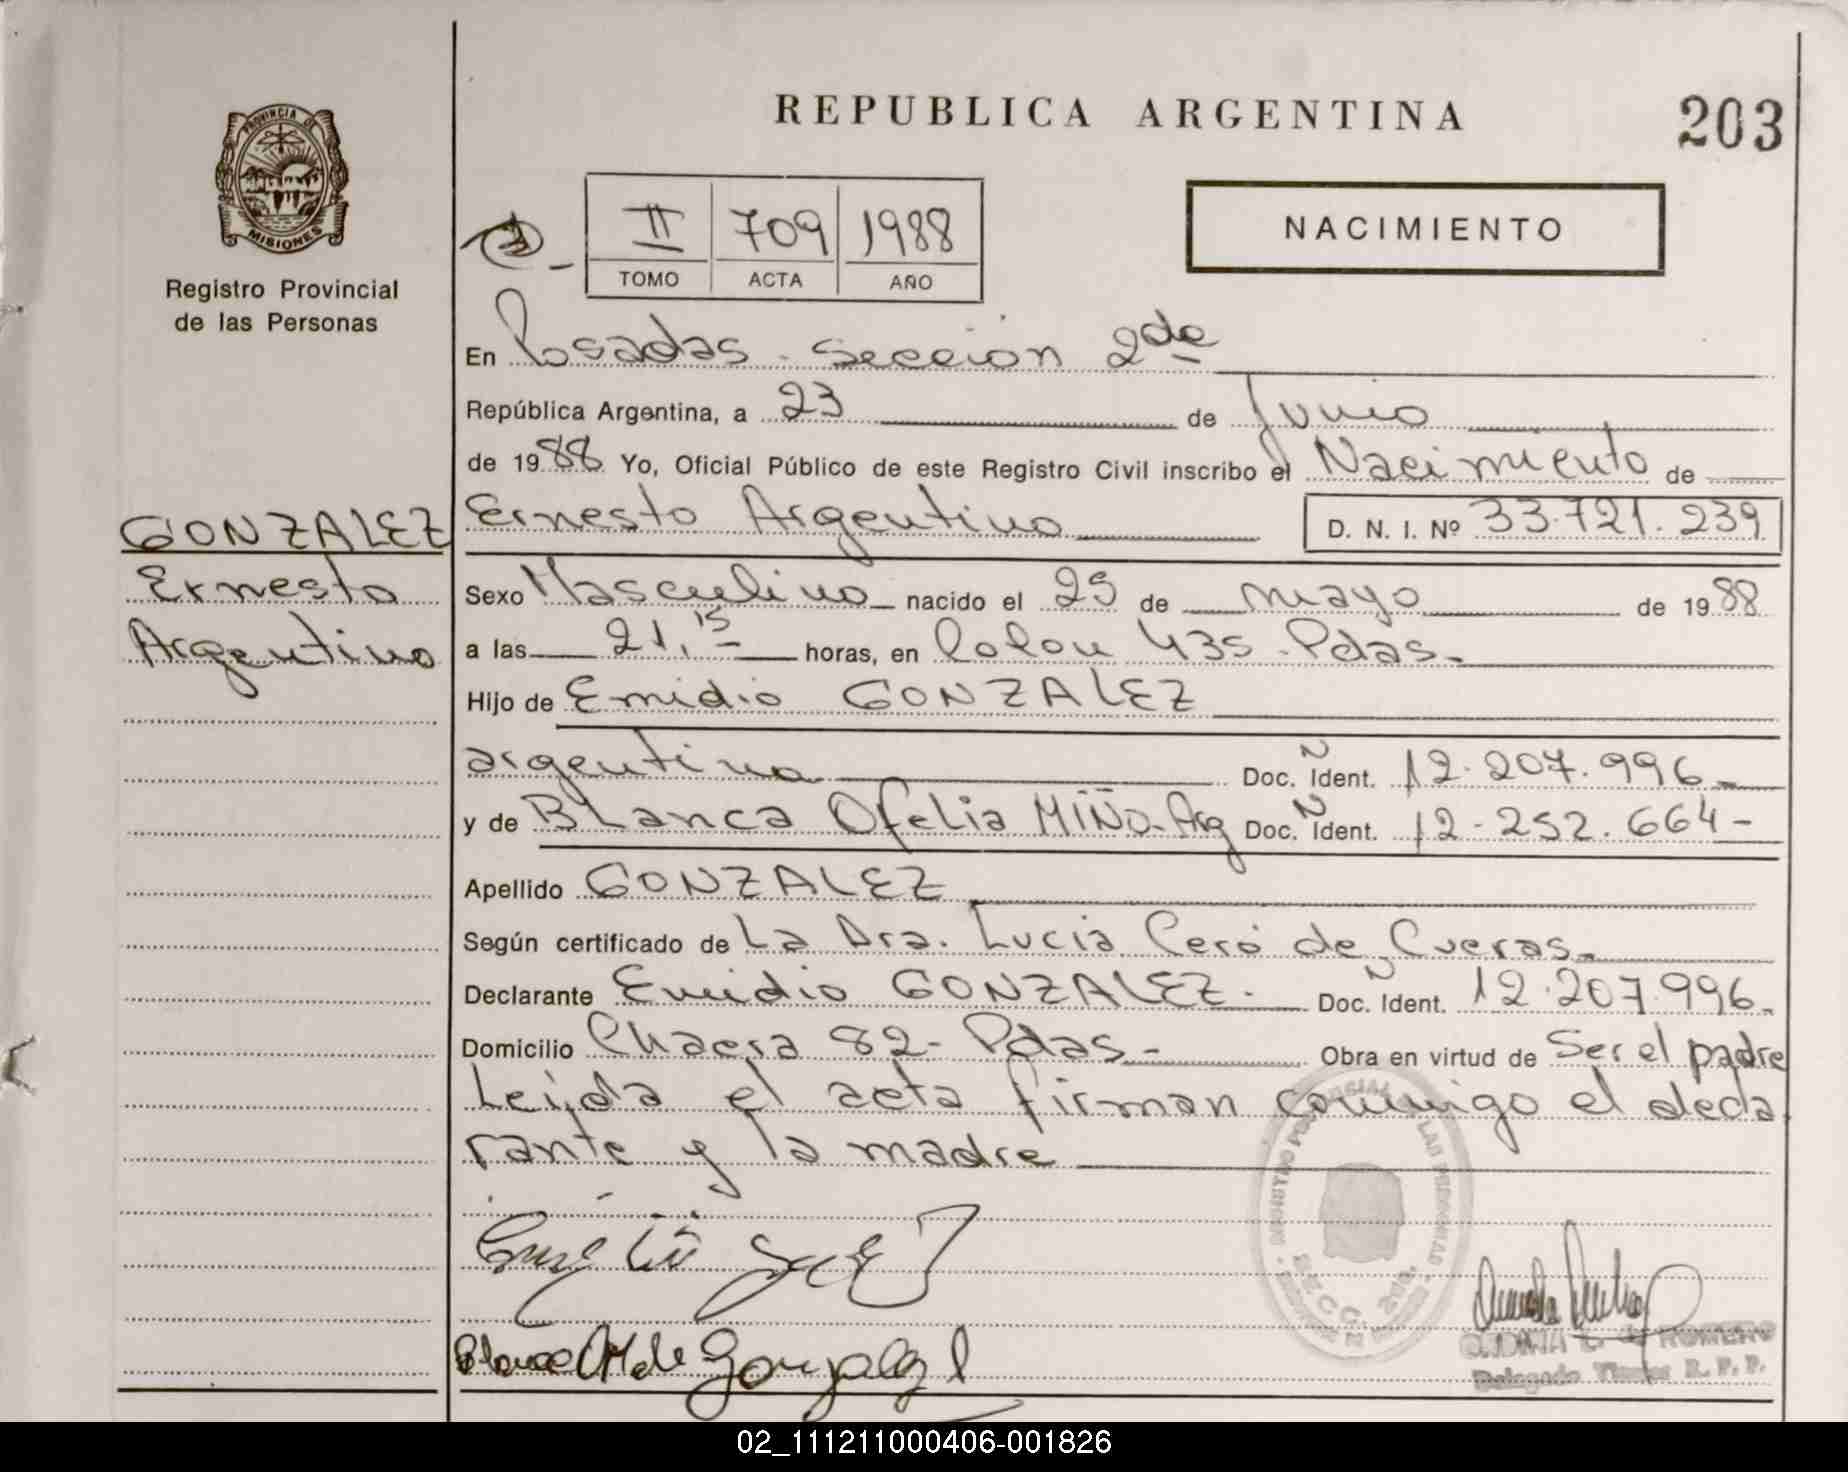 REPUBLICA ARGENTINA
203
PROVINCIA DE
MISIONES
Registro Provincial
de las Personas
II 709 1988
TOMO ACTA AÑO
NACIMIENTO
En Posadas - Sección 2da
República Argentina, a 23 de Junio
de 1988 Yo, Oficial Público de este Registro Civil inscribo el Nacimiento de
GONZALEZ
Ernesto
Argentino
Ernesto Argentino D. N. I. Nº 33.721.239
Sexo Masculino nacido el 25 de mayo de 1988
a las 21,15 horas, en Colon 435 - Pdas.
Hijo de Emidio GONZALEZ
argentina Doc. Ident. N 12.207.996-
y de Blanca Ofelia MIÑO-Arg Doc. Ident. N 12-252.664-
Apellido GONZALEZ
Según certificado de La Dra. Lucia de Cuevas
Declarante Emidio GONZALEZ. Doc. Ident. N 12.207.996-
Domicilio Chacra 82- Pdas- Obra en virtud de Ser el padre
Leída el acta firman conmigo el decla
rante y la madre
Blanca M de Gonzalez
SECC. 2da.
ROMERO
Delegado Titular R. P. P.
02_111211000406-001826